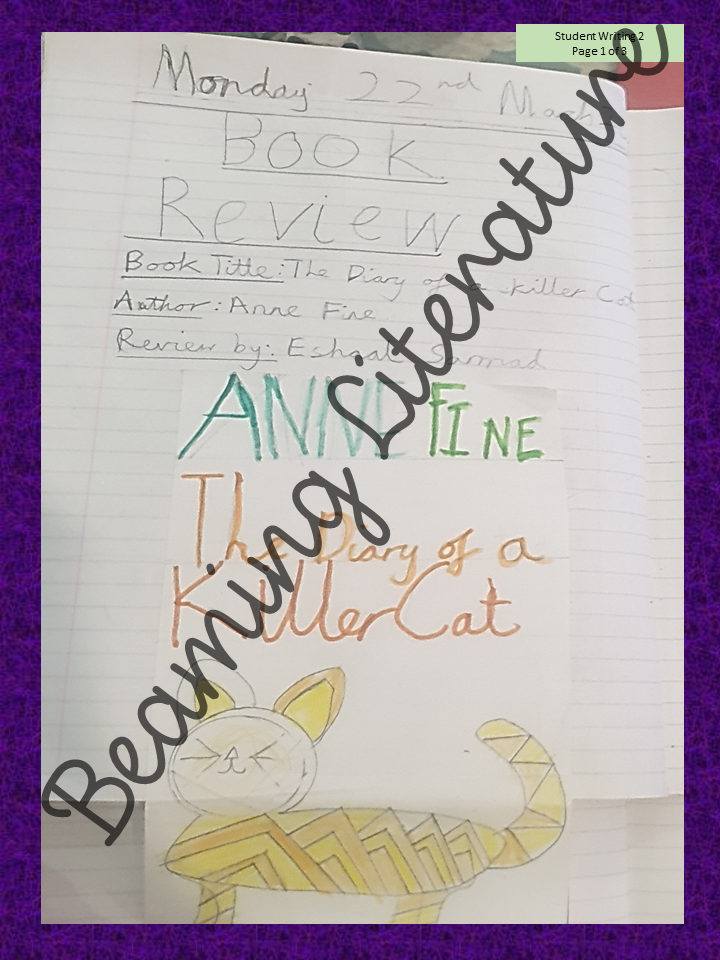 Student Writing 2
Page 1 of 3
Monday 22nd March
Book
Review
Book Title: The Diary of a Killer Cat
Author: Anne Fine
Review by: Eshaal Sarmad
ANNE FINE
The Diary of a
Killer Cat
Beaming Literature